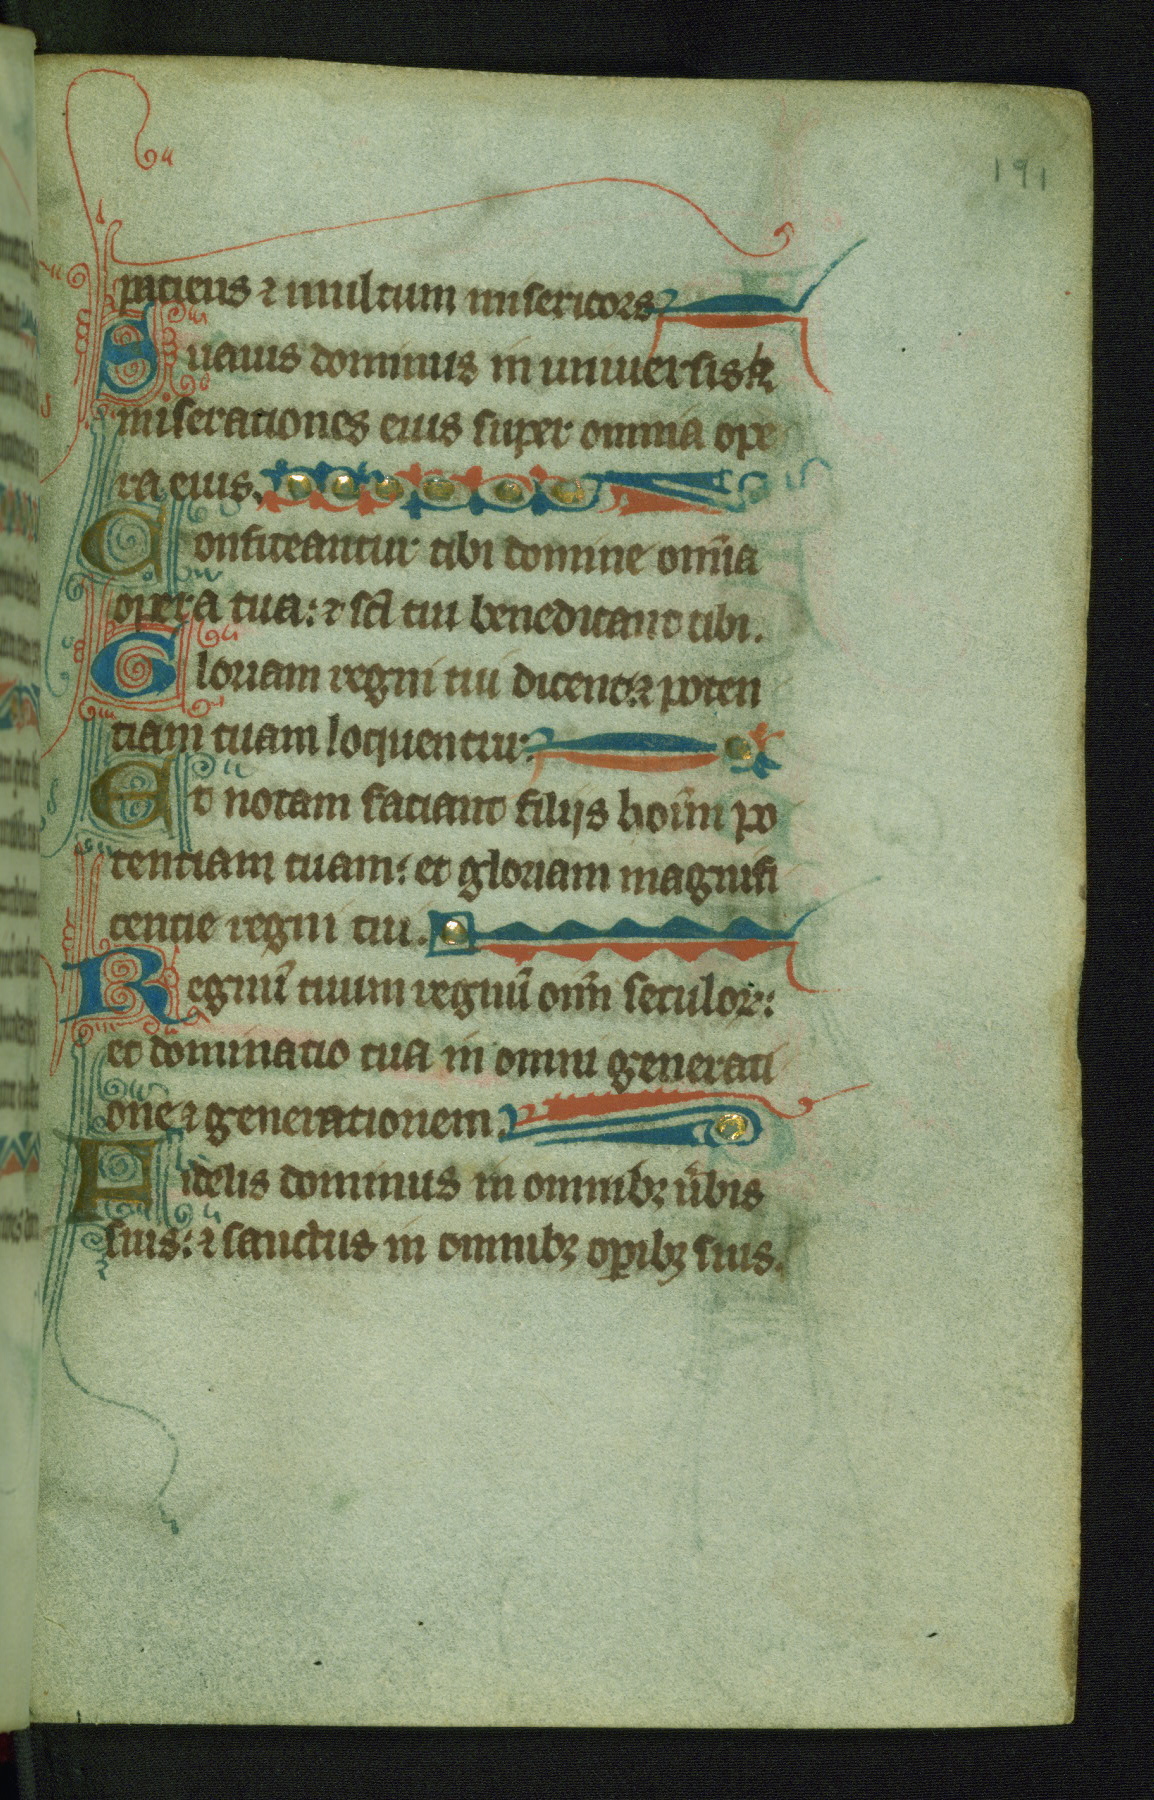 191
paciens ⁊ multum misericors
Suauis dominus in uniuersis: ⁊
miserationes eius super omnia ope
ra eius.
Confiteantur tibi domine om̄ia
opera tua: ⁊ sc̄i tui benedicant tibi.
Gloriam regni tui dicent: ⁊ poten
tiam tuam loquentur:
Et notam faciant filijs hoīm po
tentiam tuam: et gloriam magnifi
centie regni tui.
Regnū tuum regnū om̄i seculoꝝ:
et dominatio tua in omni generati
one ⁊ generationem.
Fidelis dominus in omnibꝫ ūbis
suis: ⁊ sanctus in omnibꝫ oꝑibꝫ suis.